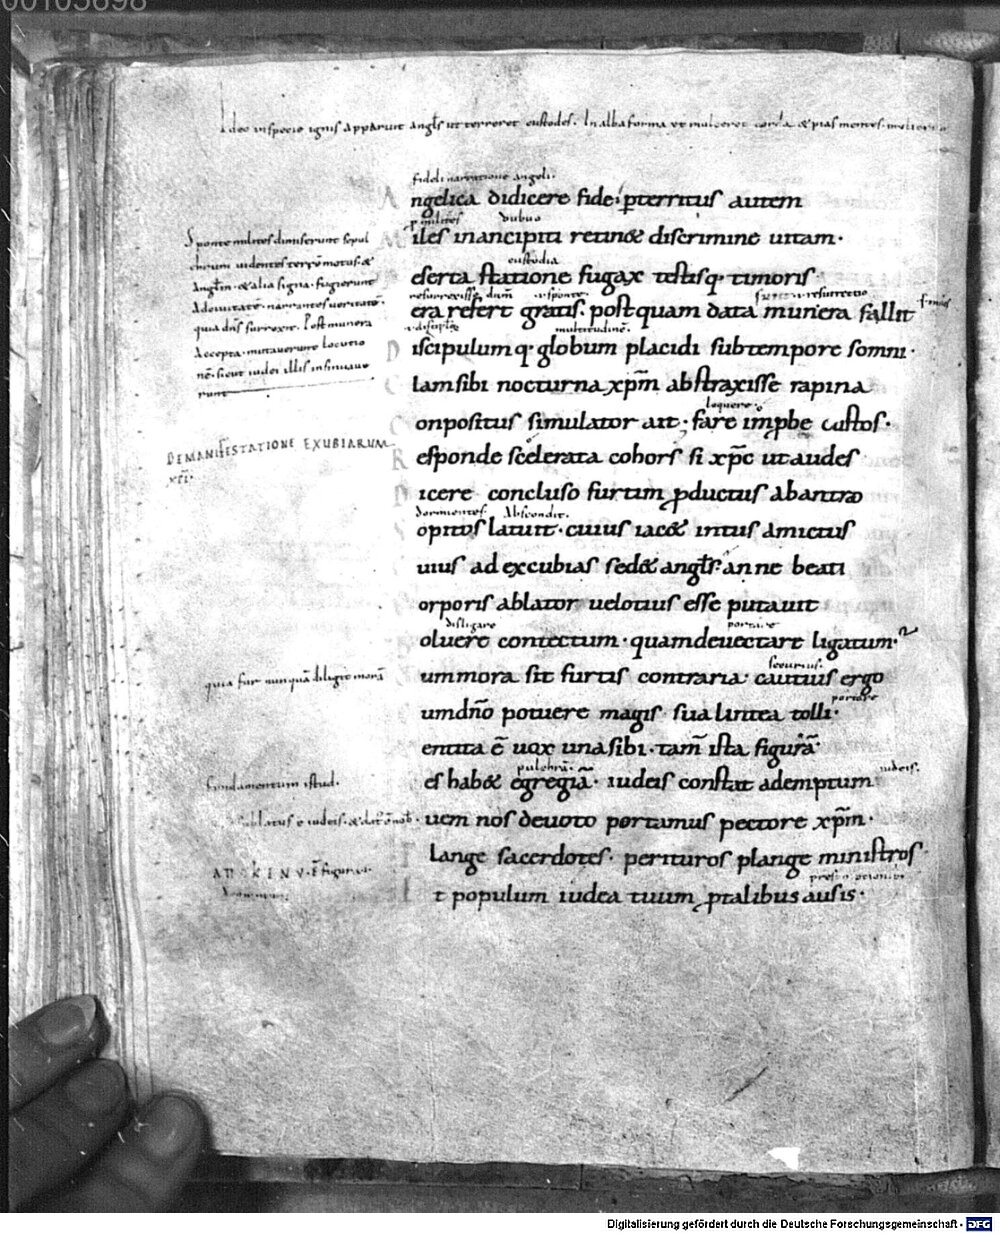 00105698
Ideo in specie ignis apparuit angls ut terreret custodes. In alba forma ut mulceret corda & pias mentes
fideli narratione angeli.
Angelica didicere fide; pterritus autem
milites dubuo
Miles inancipiti retinoẽ discrimine uitam.
custodia
eserta statione fugax testisq. timoris
resurrexisse dnm sponte resurrectio
era refert gratis. postquam data munera fallit
multitudinẽ.
Discipulum q. globum placidi sub tempore somni.
Clam sibi nocturna xpm abstraxisse rapina
loquere
Conpositus simulator ait; fare impbe custos.
Responde scelerata cohors si xpc ut audes
Dicere concluso furtim pductus ab antro
dormientes. Abscondit.
Sopitos latuit. cuius iac& intus amictus
uius ad excubias sed& angls. an ne beati
orporis ablator uelotius esse putauit
disligare portare
oluere contectum. quam deuectare ligatum.
securius.
ummora sit furtis contraria. cautius ergo
portare
um dño potuere magis sua lintea tolli.
entita ẽ uox una sibi. tam̃ ista figurã
pulchrã. iudeis.
es hab& egregiã. iudeis constat ademptum
uem nos deuoto portamus pectore xpm.
Plange sacerdotes. perituros plange ministros
Et populum iudea tuum ptalibus ausis.
Sponte milites dimiserunt sepul
chrum uidentes terrẽmotus. &
Anglm. & alia signa. fugierunt
Adciuitatẽ. narrantes ueritatẽ.
quia dñs surrexit. Post munera
Accepta. mutauerunt locutio
nẽ. sicut iudei illis insinuaue
runt
DE MANIFESTATIONE EXUBIARUM
xpi.
quia fur nunquã diligit morã
fundamentum istud.
ablatus e iudeis. & datõ nob.
figurat
Digitalisierung gefördert durch die Deutsche Forschungsgemeinschaft - DFG